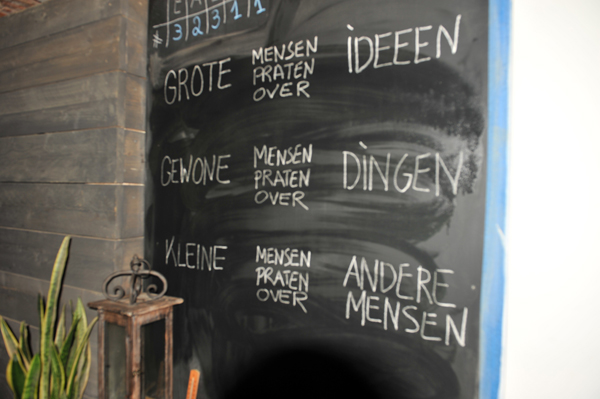 # 3 2 3 1 1
GROTE MENSEN PRATEN OVER iDEEEN
GEWONE MENSEN PRATEN OVER DiNGEN
KLEINE MENSEN PRATEN OVER ANDERE MENSEN